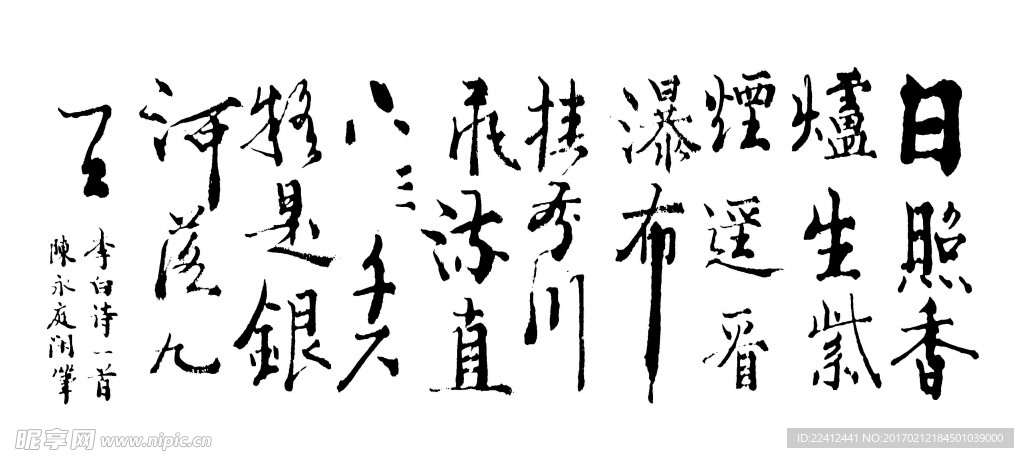 日照香
爐生紫
煙遥看
瀑布
挂前川
飛流直
下三千尺
疑是銀
河落九
天
李白诗一首
陳永庭闲筆
昵享网 www.nipic.cn
ID:22412441 NO:20170212184501039000